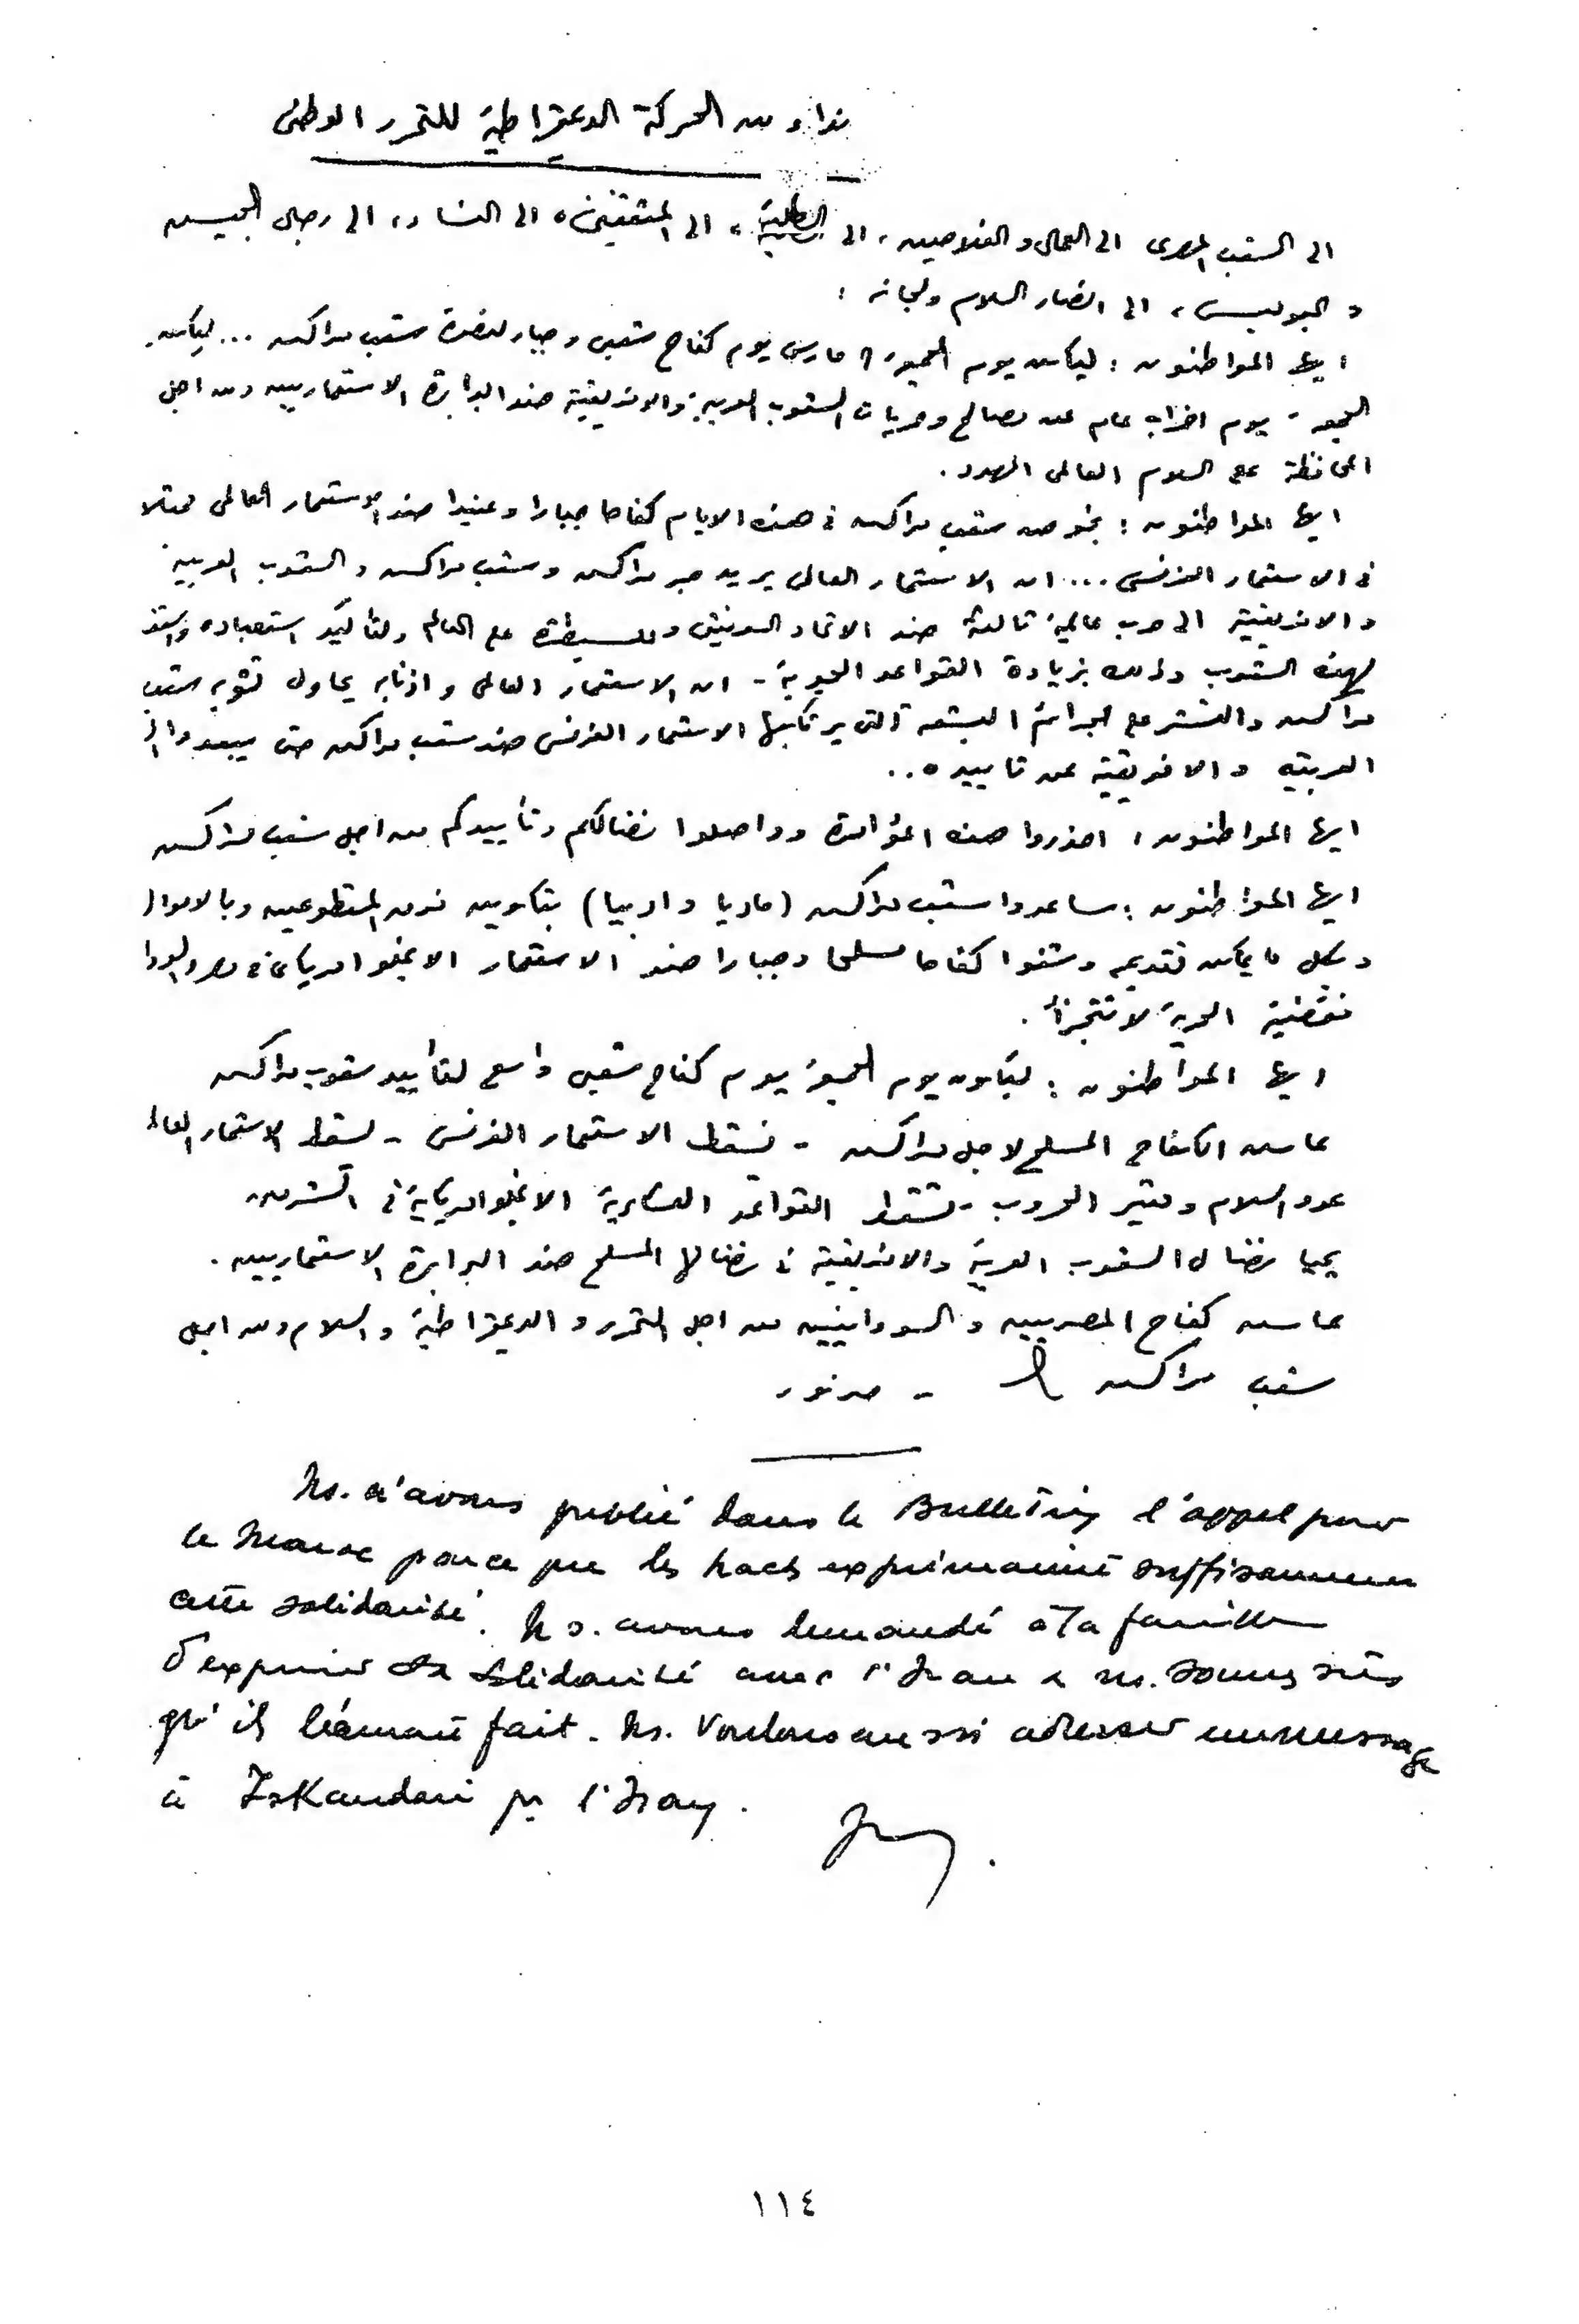 نداء من الحركة الديمقراطية للتحرر الوطنى
الى الشعب المصرى الى العمال والفلاحين، الى الطلبة، الى المثقفين، الى النساء، الى رجال الجيش
والبوليس، الى انصار السلام ولجانه :
ايها المواطنون : ليكن يوم الجمعة مارس يوم كفاح شعبى وجبار لنصرة شعب مراكش ... ليكن
الجمعة يوم اضراب عام عن مصالح وحريات الشعوب العربية والافريقية ضد البرابرة الاستعماريين ومن اجل
المحافظة على السلام العالمى المهدد .
ايها المواطنون : يخوض شعب مراكش فى هذه الايام كفاحا جبارا وعنيدا ضد الاستعمار العالمى ممثلا
فى الاستعمار الفرنسى ... ان الاستعمار العالمى يريد جر مراكش وشعب مراكش والشعوب العربية
والافريقية الى حرب عالمية ثالثة ضد الاتحاد السوفيتى وللسيطرة على العالم ولتأكيد استعباده
لهذه الشعوب وذلك بزيادة القواعد الجوية - ان الاستعمار العالمى واذنابه يحاول تشويه شعب
مراكش والتستر على الجرائم البشعة التى يرتكبها الاستعمار الفرنسى ضد شعب مراكش حتى يبعدوا
العربية والافريقية عن تاييده ..
ايها المواطنون، احذروا هذه المؤامرة وواصلوا نضالكم وتأييدكم من اجل شعب مراكش
ايها المواطنون : ساعدوا شعب مراكش (ماديا وادبيا) بتكوين فرق المتطوعين وبالاموال
وبكل ما يمكن تقديمه وشنوا كفاحا مسلحا وجبارا ضد الاستعمار الانجلوامريكانى فى مصر والسودا
فقضية الحرية لا تتجزأ .
ايها المواطنون : ليكون يوم الجمعة يوم كفاح شعبى واسع لتأييد شعوب مراكش
عاش الكفاح المسلح لاجل مراكش - يسقط الاستعمار الفرنسى - يسقط الاستعمار العالمى
عدو السلام ومثير الحروب - تسقط القواعد العسكرية الانجلوامريكية فى الشرق
يحيا نضال الشعوب العربية والافريقية فى نضالها المسلح ضد البرابرة الاستعماريين .
عاش كفاح المصريين والسودانيين من اجل التحرر والديمقراطية والسلام ومن اجل
شعب مراكش - حدتو
Ns. n'avons publié dans le Bulletin l'appel pour
le Maroc parce que les tracts exprimaient suffisamment
cette solidarité. Ns. avons demandé à la famille
d'exprimer sa solidarité avec l'Iran & ns. sommes sûrs
qu'ils l'auront fait. Ns. voulons aussi adresser un message
à Iskandari pr l'Iran.
١١٤